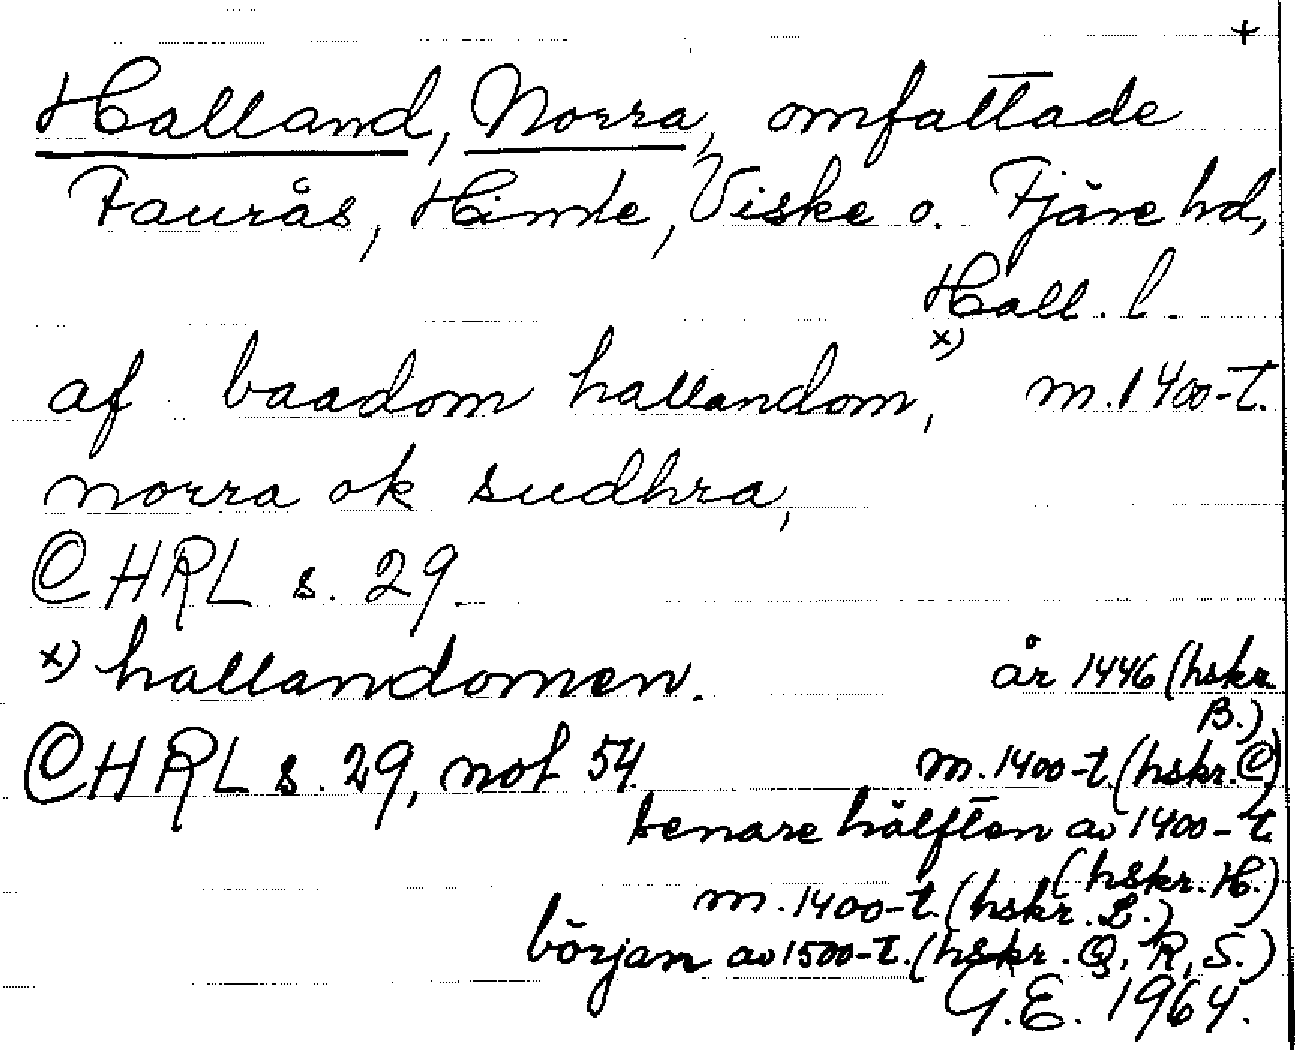 +
Halland, Norra, omfattade
Faurås, Himle, Viske o. Fjäre hd,
Hall. l.
af baadom hallandom, x) m. 1400-t.
norra ok sudhra,
© HRL s. 29
x) hallandomen. år 1446 (hskr.
B.)
© HRL s. 29, not 54. m. 1400-t. (hskr. C)
senare hälften av 1400-t.
(hskr. H.)
m. 1400-t. (hskr. L.)
början av 1500-t. (hskr. Q, R, S.)
G.E. 1964.